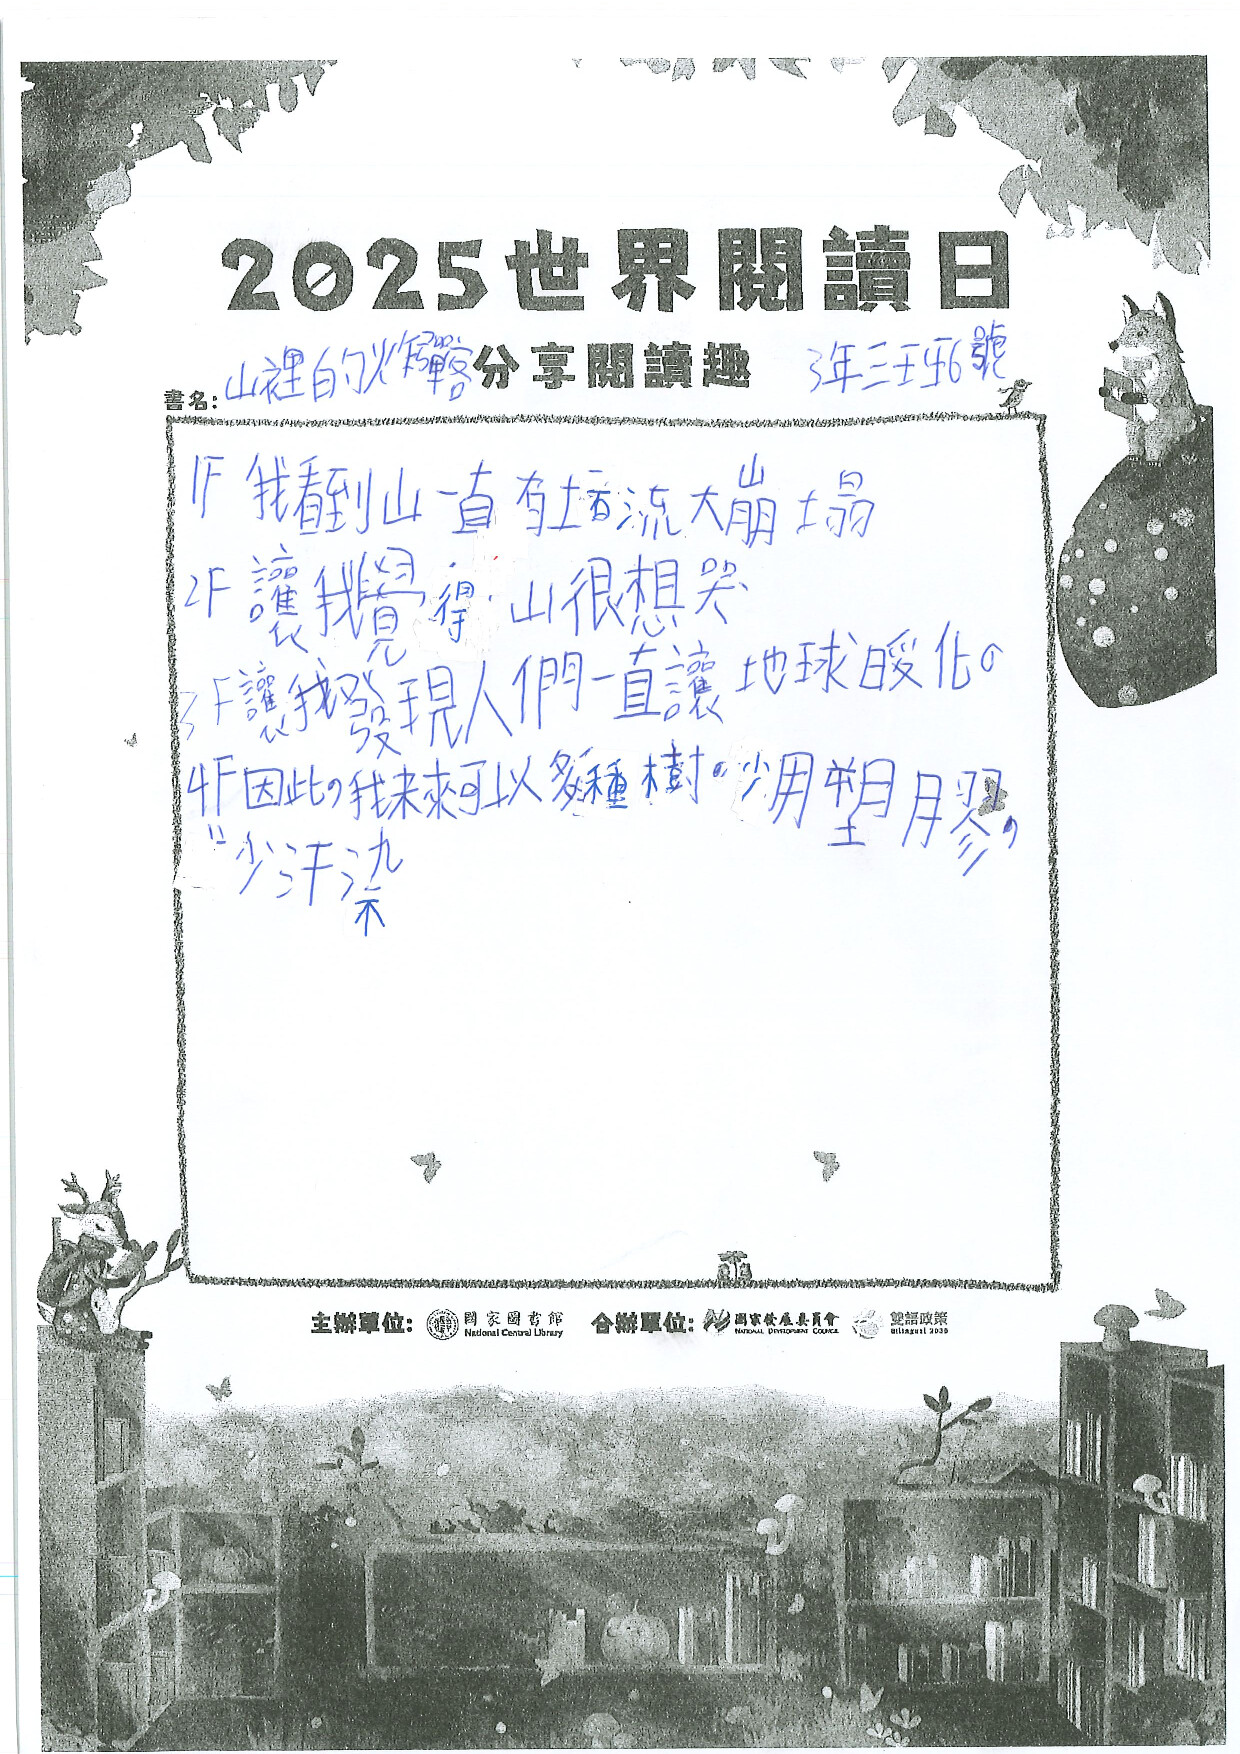 2025世界閱讀日
山裡的炸彈客 分享閱讀趣 3年三王班6號
書名:
1F 我看到山一直有土石流大崩塌
2F 讓我覺得山很想哭
3F讓我發現人們一直讓地球暖化。
4F因此,我未來可以多種樹。少用塑膠,
少汙染
主辦單位: 國家圖書館 National Central Library 合辦單位: 國家發展委員會 NATIONAL DEVELOPMENT COUNCIL 雙語政策 Bilingual 2030